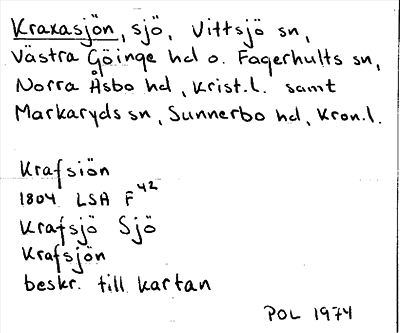 Kraxasjön, sjö, Vittsjö sn,
Västra Göinge hd o. Fagerhults sn,
Norra Åsbo hd, Krist.l. samt
Markaryds sn, Sunnerbo hd, Kron.l.
Krafsiön
1804 LSA F 42
Krafsjö Sjö
Krafsjön
beskr. till kartan
POL 1974